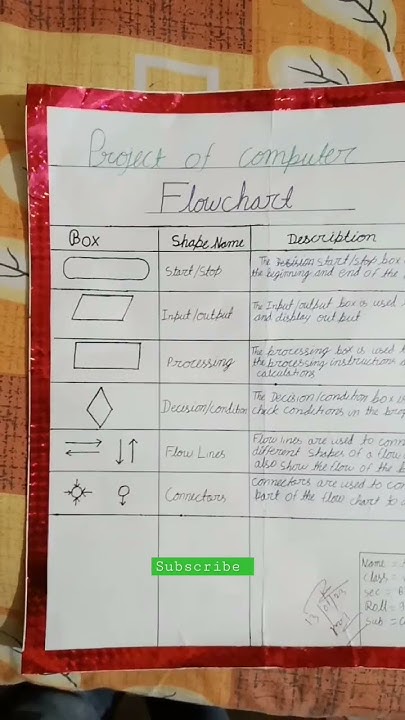 Project of computer
Flowchart
Box Shape Name Description
Start/Stop
The Start/stop box
the beginning and end of the
Input/output
The Input/output box is used
and display output
Processing
The processing box is used
the processing instructions
calculations
Decision/condition
The Decision/condition box is
check conditions in the
Flow Lines
Flow lines are used to
different shapes of a flow
also show the flow of the
Connectors
connectors are used to
part of the flow chart to
Subscribe
Name =
Class =
Sec = B
Roll =
Sub =